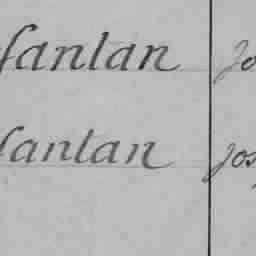 Sanlan Jo
Santan Jos